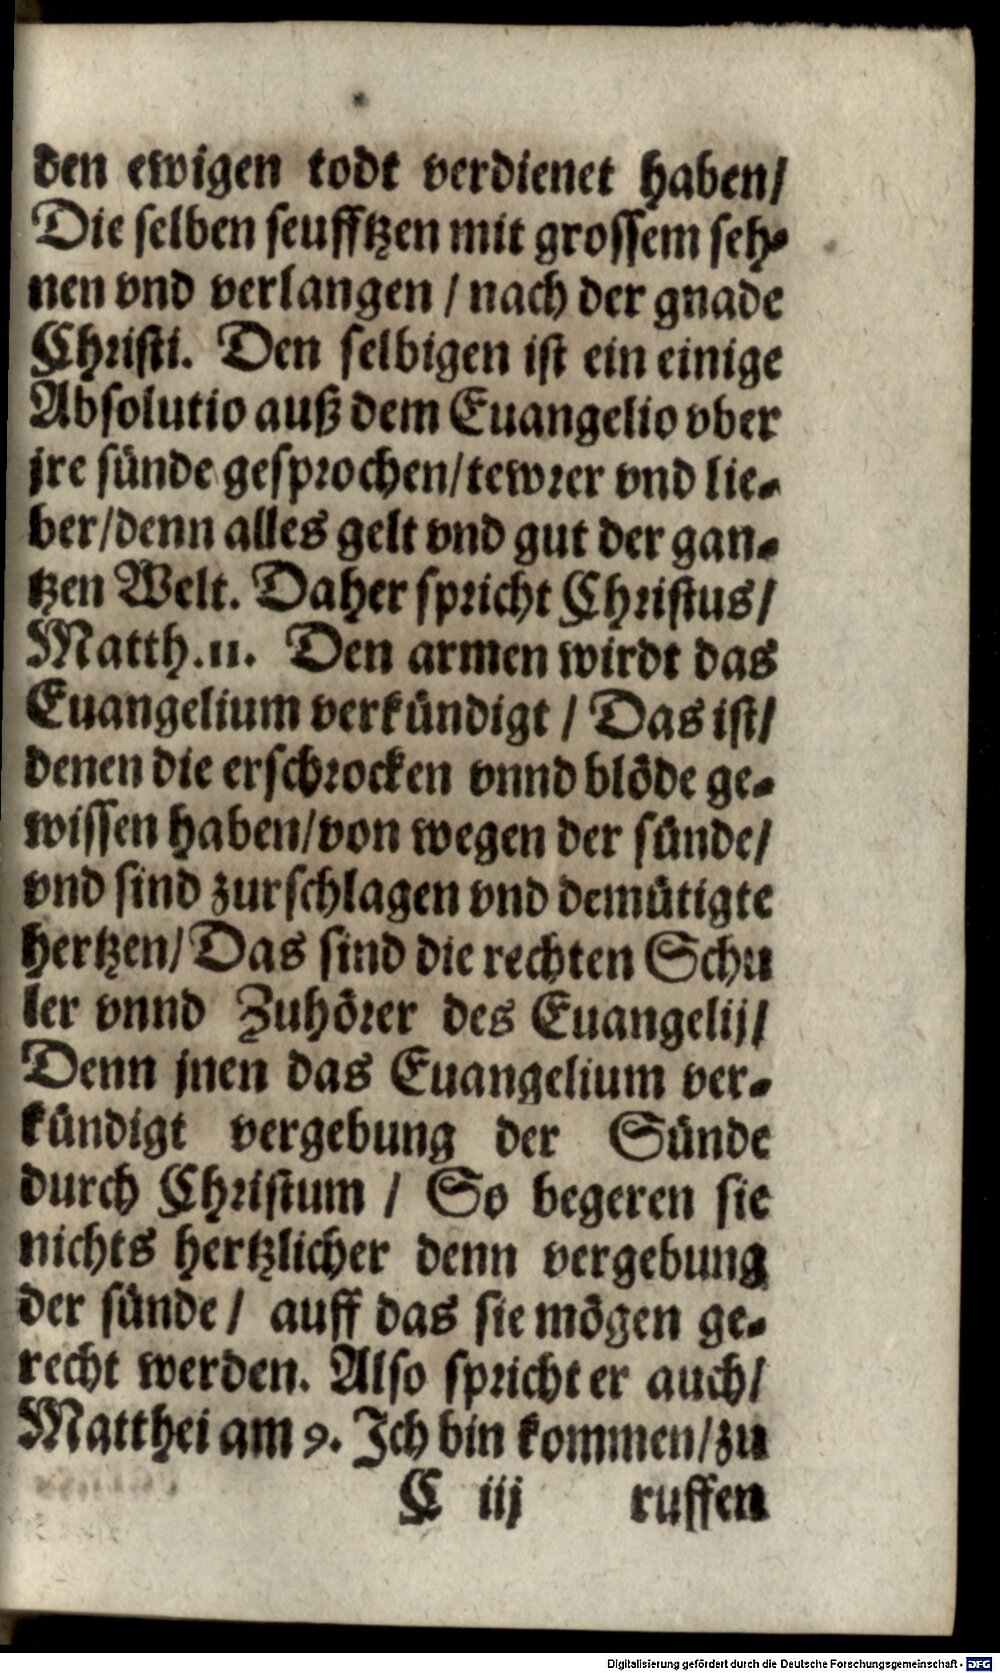 den ewigen todt verdienet haben/
Die selben seufftzen mit grossem seh-
nen vnd verlangen / nach der gnade
Christi. Den selbigen ist ein einige
Absolutio auß dem Euangelio vber
jre sünde gesprochen/tewrer vnd lie-
ber/denn alles gelt vnd gut der gan-
tzen Welt. Daher spricht Christus/
Matth.11. Den armen wirdt das
Euangelium verkündigt / Das ist/
denen die erschrocken vnnd blöde ge-
wissen haben/von wegen der sünde/
vnd sind zurschlagen vnd demütigte
hertzen/Das sind die rechten Schu
ler vnnd Zuhörer des Euangelij/
Denn jnen das Euangelium ver-
kündigt vergebung der Sünde
durch Christum / So begeren sie
nichts hertzlicher denn vergebung
der sünde / auff das sie mögen ge-
recht werden. Also spricht er auch/
Matthei am 9. Ich bin kommen/zu
C iij ruffen
Digitalisierung gefördert durch die Deutsche Forschungsgemeinschaft - DFG